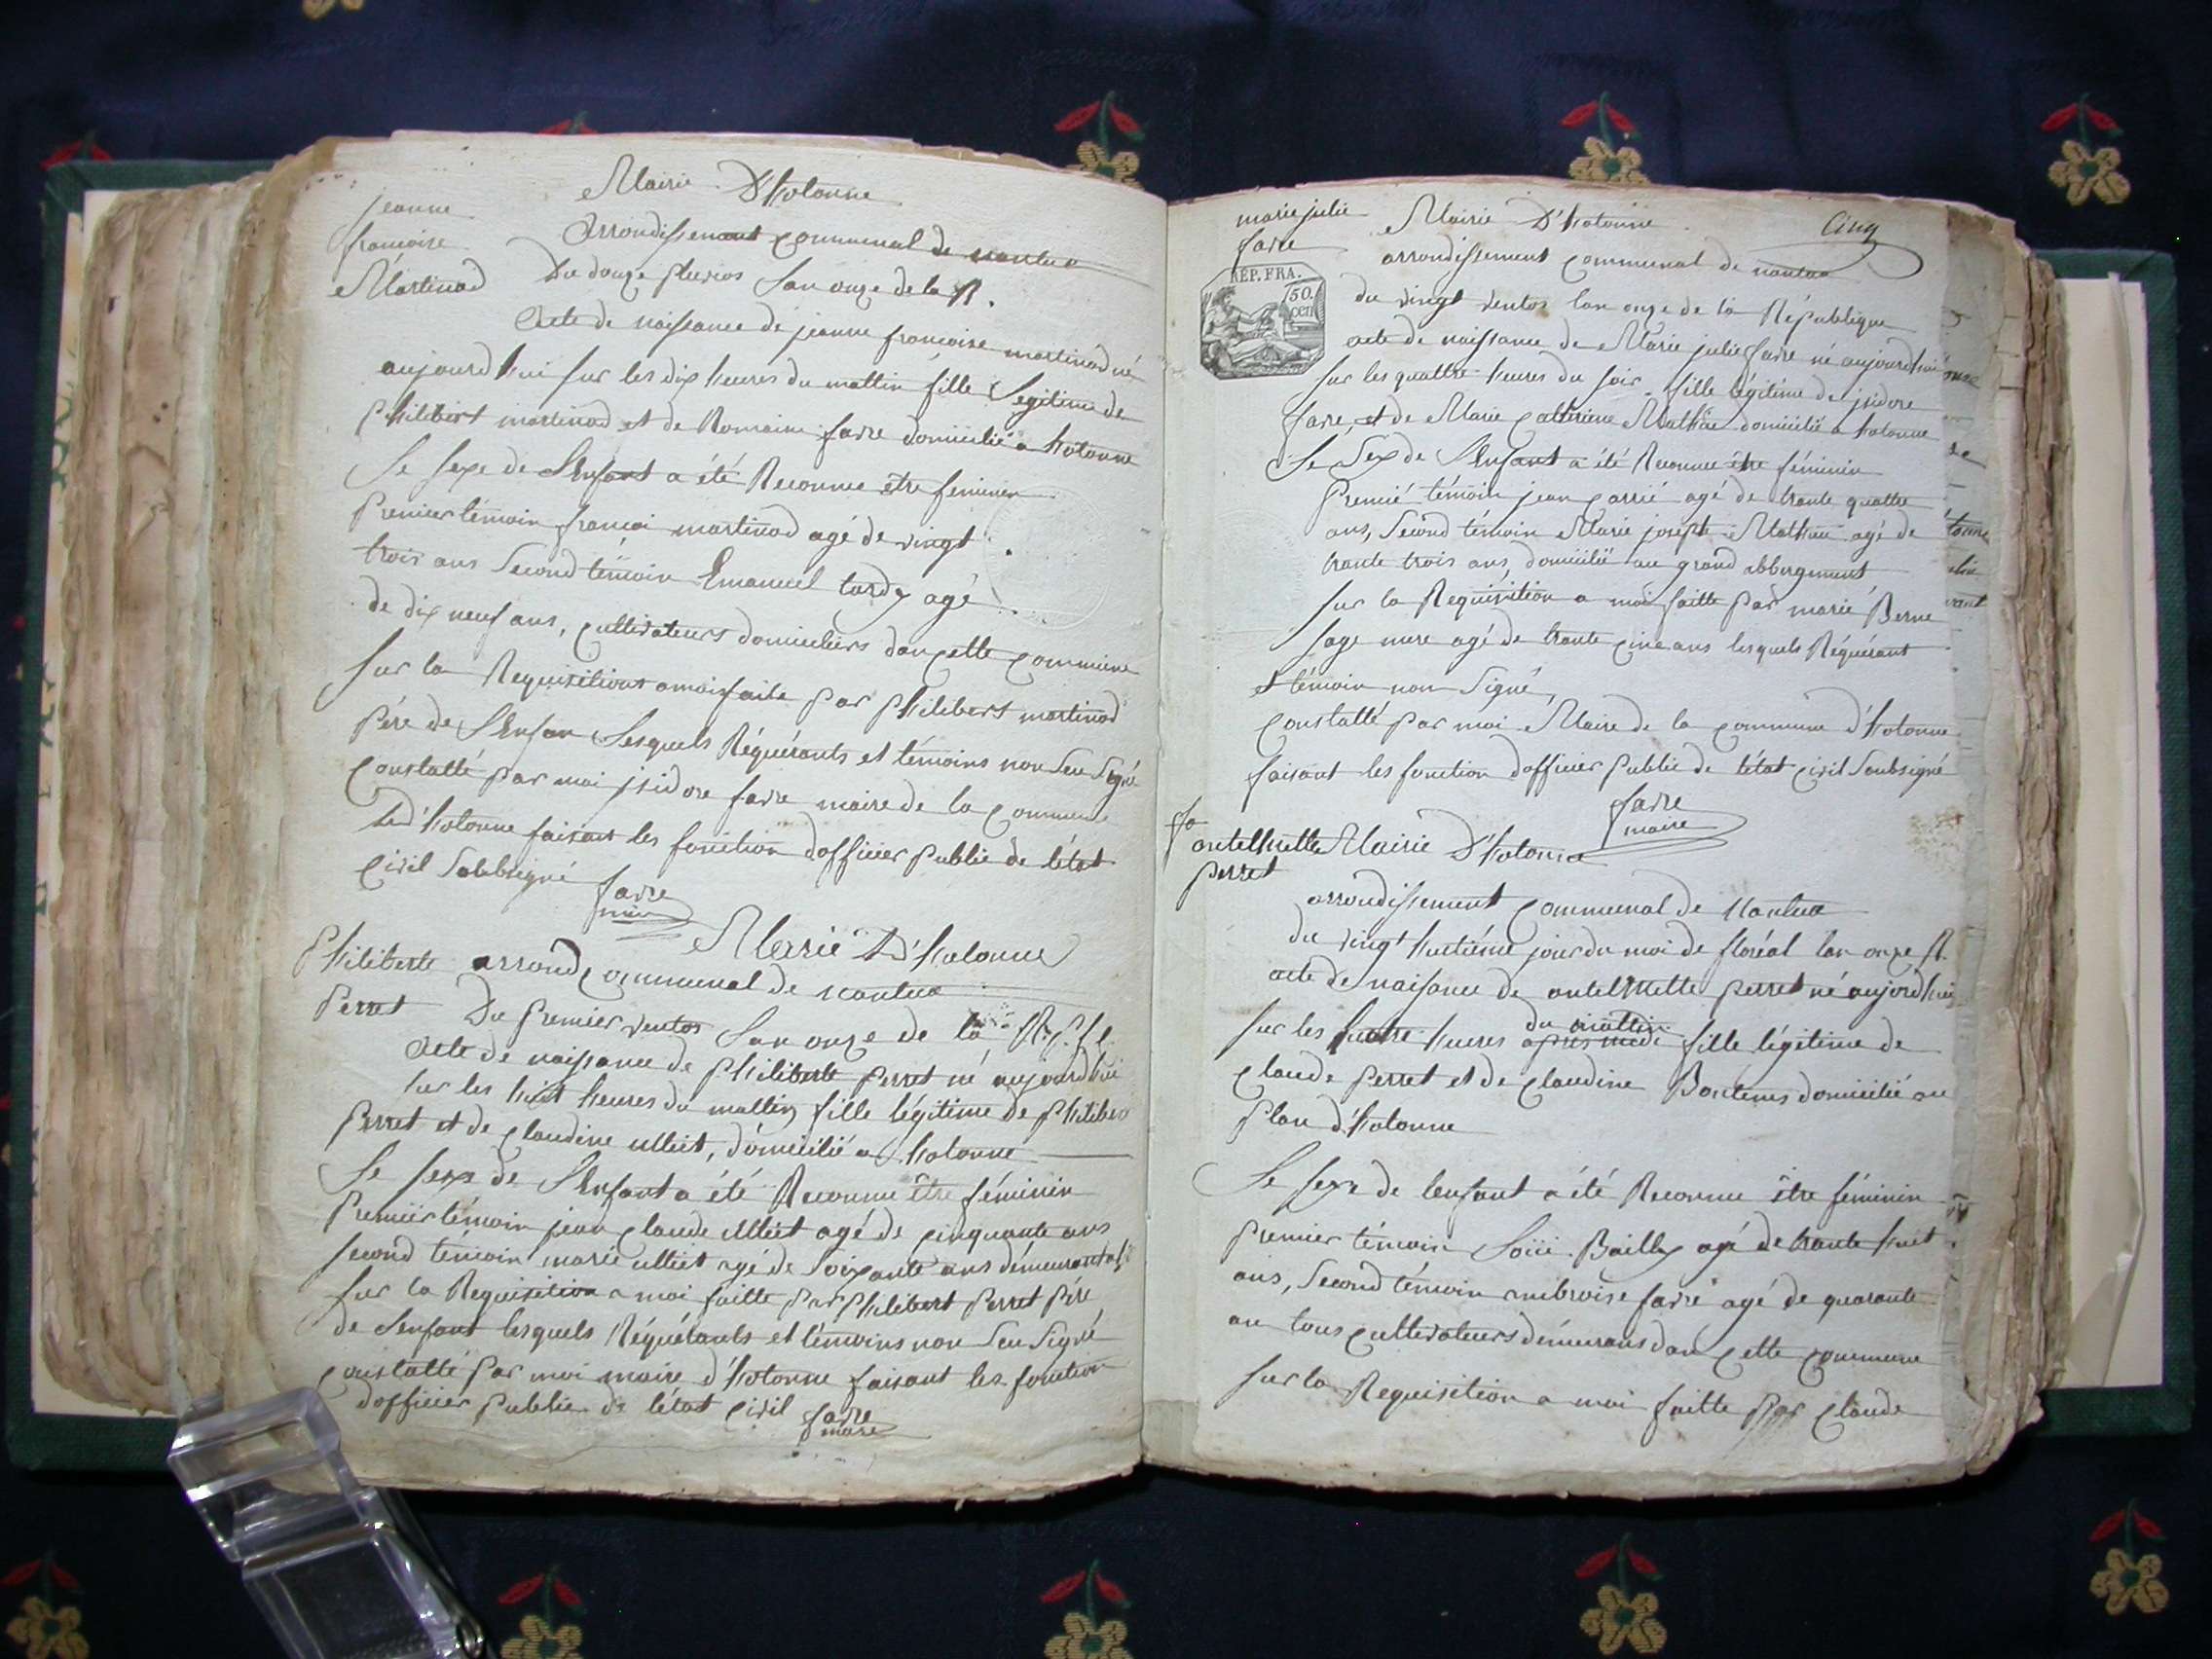 Mairie D'hotonne
jeanne
francoise
Martinod
Arrondissement communal de nantua
Du douze pluvios Lan onze de la R.
Acte de naissance de jeanne francoise martinod né
aujourdhui sur les dix heures du mattin fille Legitime de
philibert martinod et de Romaine favre domicilié a hotonne
Le sexe de L'Enfant a été Reconnue etre feminin
Premier témoin francoi martinod agé de vingt
trois ans Second témoin Emanuel tardy agé
de dix neuf ans, cultivateurs domiciliers dan cette commune
sur la Requisitions a moi faite par philibert martinod
pére de L'Enfan Lesquels Réquérants et témoins non Seu Signé
constatté par moi jsidore favre maire de la commune
D'hotonne faisant les fonction dofficier public de l'état
civil Soubsigné
favre
maire
Mairie D'hotonne
Philiberte
Perret
arrond communal de nantua
Du Premier ventos Lan onze de la R.
Acte de naissance de philiberte perret né aujourdhui
sur les huit heures du mattin, fille légitime de philiber
perret et de claudine ulliet, domicilié a hotonne
Le sexe de L'Enfant a été Reconnu être féminin
Premier témoin jean claude ulliet agé de cinquante ans
second témoin marie ulliet agé de Soixante ans démeurant
sur la Requisition a moi faitte par philibert perret pére
de Lenfant lesquels Réquérants et témoins non Seu Signé
constatté par moi maire d'hotonne faisant les fonction
dofficier public de l'état civil
favre
maire
marie julie
favre
Mairie D'hotonne
Cinq
arrondissement communal de nantua
RÉP. FRA.
50.
cen
du vingt ventos lan onze de la République
acte de naissance de Marie julie favre né aujourdhui
sur les quattre heures du soir, fille légitime de jsidore
favre, et de Marie catherine Mathieu domicilié a hotonne
Le Sexe de L'Enfant a été Reconnue être féminin
Premié témoin jean carrié agé de trante quattre
ans, Second témoin Marie joseph Mathieu agé de
trante trois ans, domicilié au grand abbergement
sur la Requisition a moi faitte par marie Berne
sage mere agé de trante cinc ans lesquels Réquérant
et témoin non Signé,
constatté par moi Maire de la commune d'hotonne
faisant les fonction dofficier public de l'état civil Soubsigné
favre
maire
antelmette
perret
Mairie D'hotonne
arrondissement communal de Nantua
du vingt huitiéme jour du moi de floréal lan onze R.
acte de naisance de antelmette perret né aujordhui
sur les quatre heures du mattin
après midi fille légitime de
claude perret et de claudine Bontems domicilié au
plan d'hotonne
Le sexe de lenfant a été Reconnue être féminin
Premier témoin Bailly agé de trante huit
ans, Second témoin ambroise favre agé de quarante
an tous cultivateurs démeurans dan cette commune
sur la Requisition a moi faitte par claude